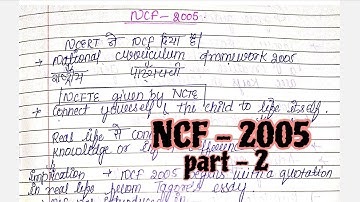 NCF-2005.
NCERT ने NCF दिया है।
→ National curriculum framework 2005
राष्ट्रीय पाठ्यचर्या
NCFTE given by NCTE
→ Connect yourself & the child to life itself.
Real life से con
knowledge or
NCF - 2005
part - 2
Implication → NCF 2005 begins with a quotation
in real life from Tagore essay.
introduced in